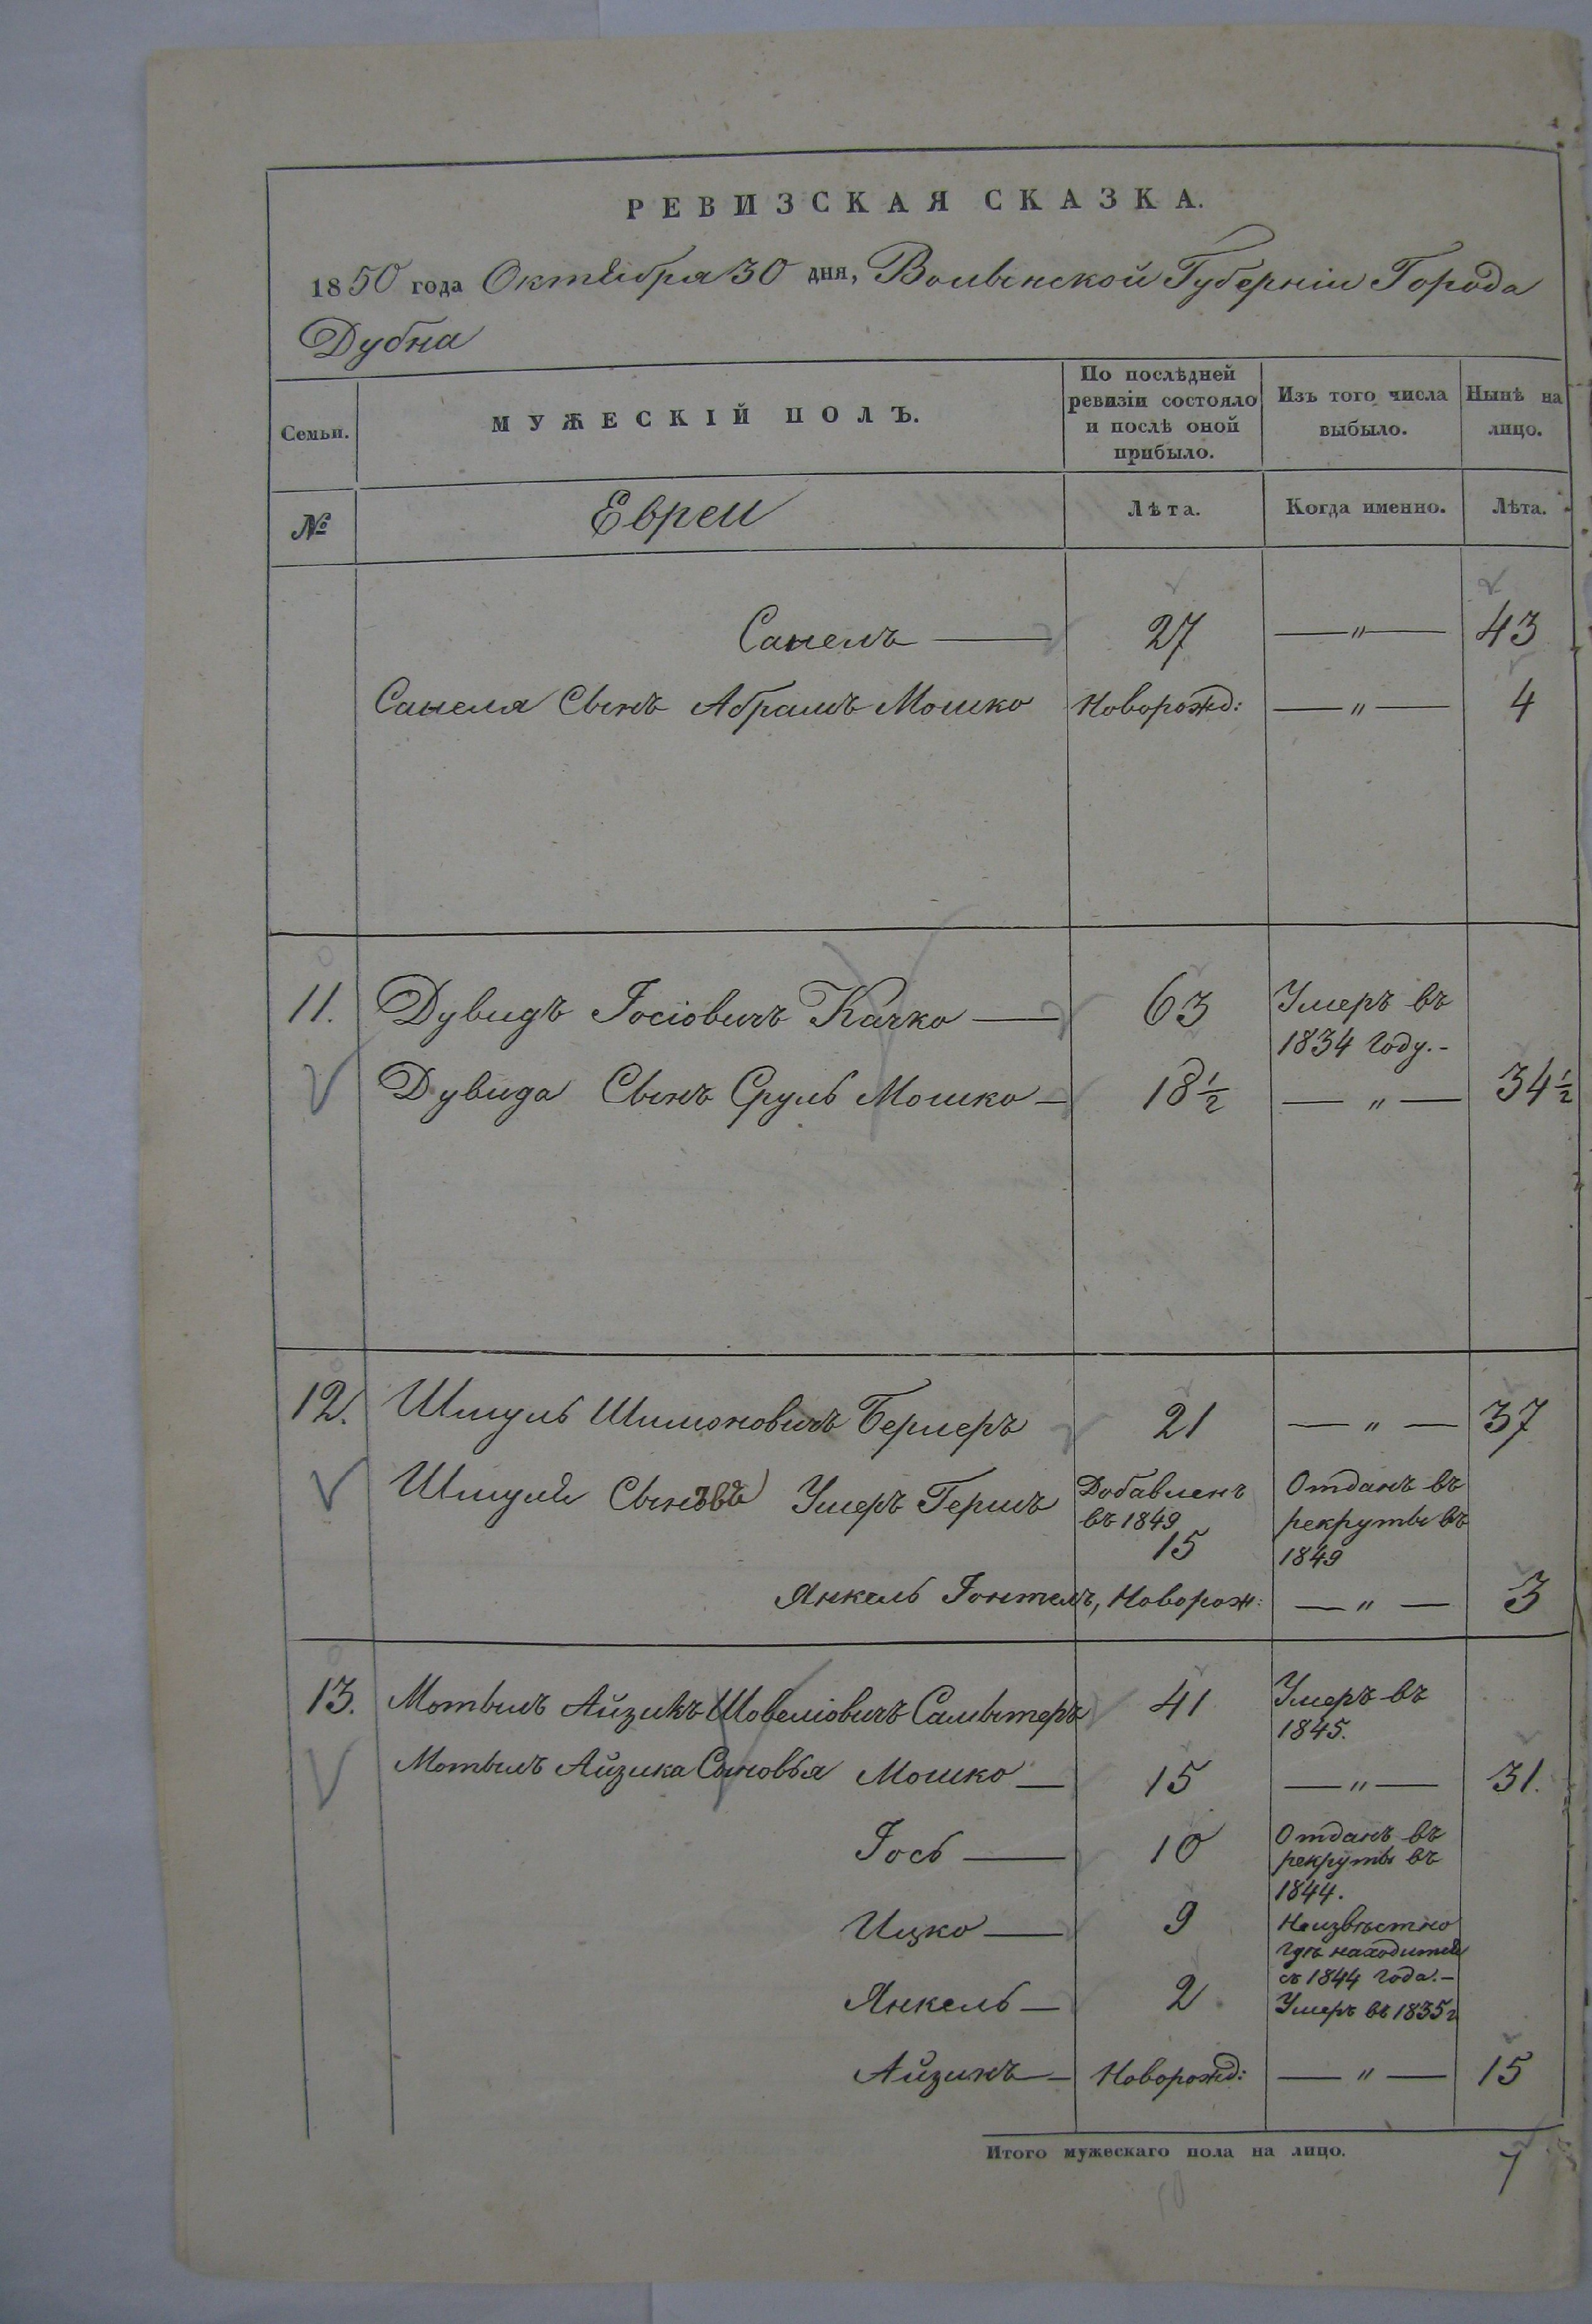 РЕВИЗСКАЯ СКАЗКА.
1850 года Октября 30 дня, Волынской Губерніи Города
Дубна
Семьи.
МУЖЕСКІЙ ПОЛЪ.
По послѣдней
ревизіи состояло
и послѣ оной
прибыло.
Изъ того числа
выбыло.
Нынѣ на
лицо.
№
Евреи
Лѣта.
Когда именно.
Лѣта.
Санель — 27 — " — 43
Санеля Сынъ Абрамъ Мошко Новорожд: — " — 4
11. Дувидъ Іосіовичъ Качко — 63 Умеръ въ
1834 году.-
Дувида Сынъ Сруль Мошко — 18½ — " — 34½
12. Шмуль Шимоновичъ Бернеръ 21 — " — 37
Шмуля Сыновья Умеръ Гершъ Добавленъ
въ 1849
15
Отданъ въ
рекруты въ
1849
Янкель Іонтель, Новорож: — " — 3
13. Мотыль Айзикъ Шовеліовичъ 41 Умеръ въ
1845.
Мотыль Айзика Сыновья Мошко — 15 — " — 31.
Іось — 10 Отданъ въ
рекруты въ
1844.
Ицко — 9 Неизвѣстно
гдѣ находится
съ 1844 года.-
Янкель — 2 Умеръ въ 1835 г
Айзикъ — Новорожд: — " — 15
Итого мужескаго пола на лицо. 7